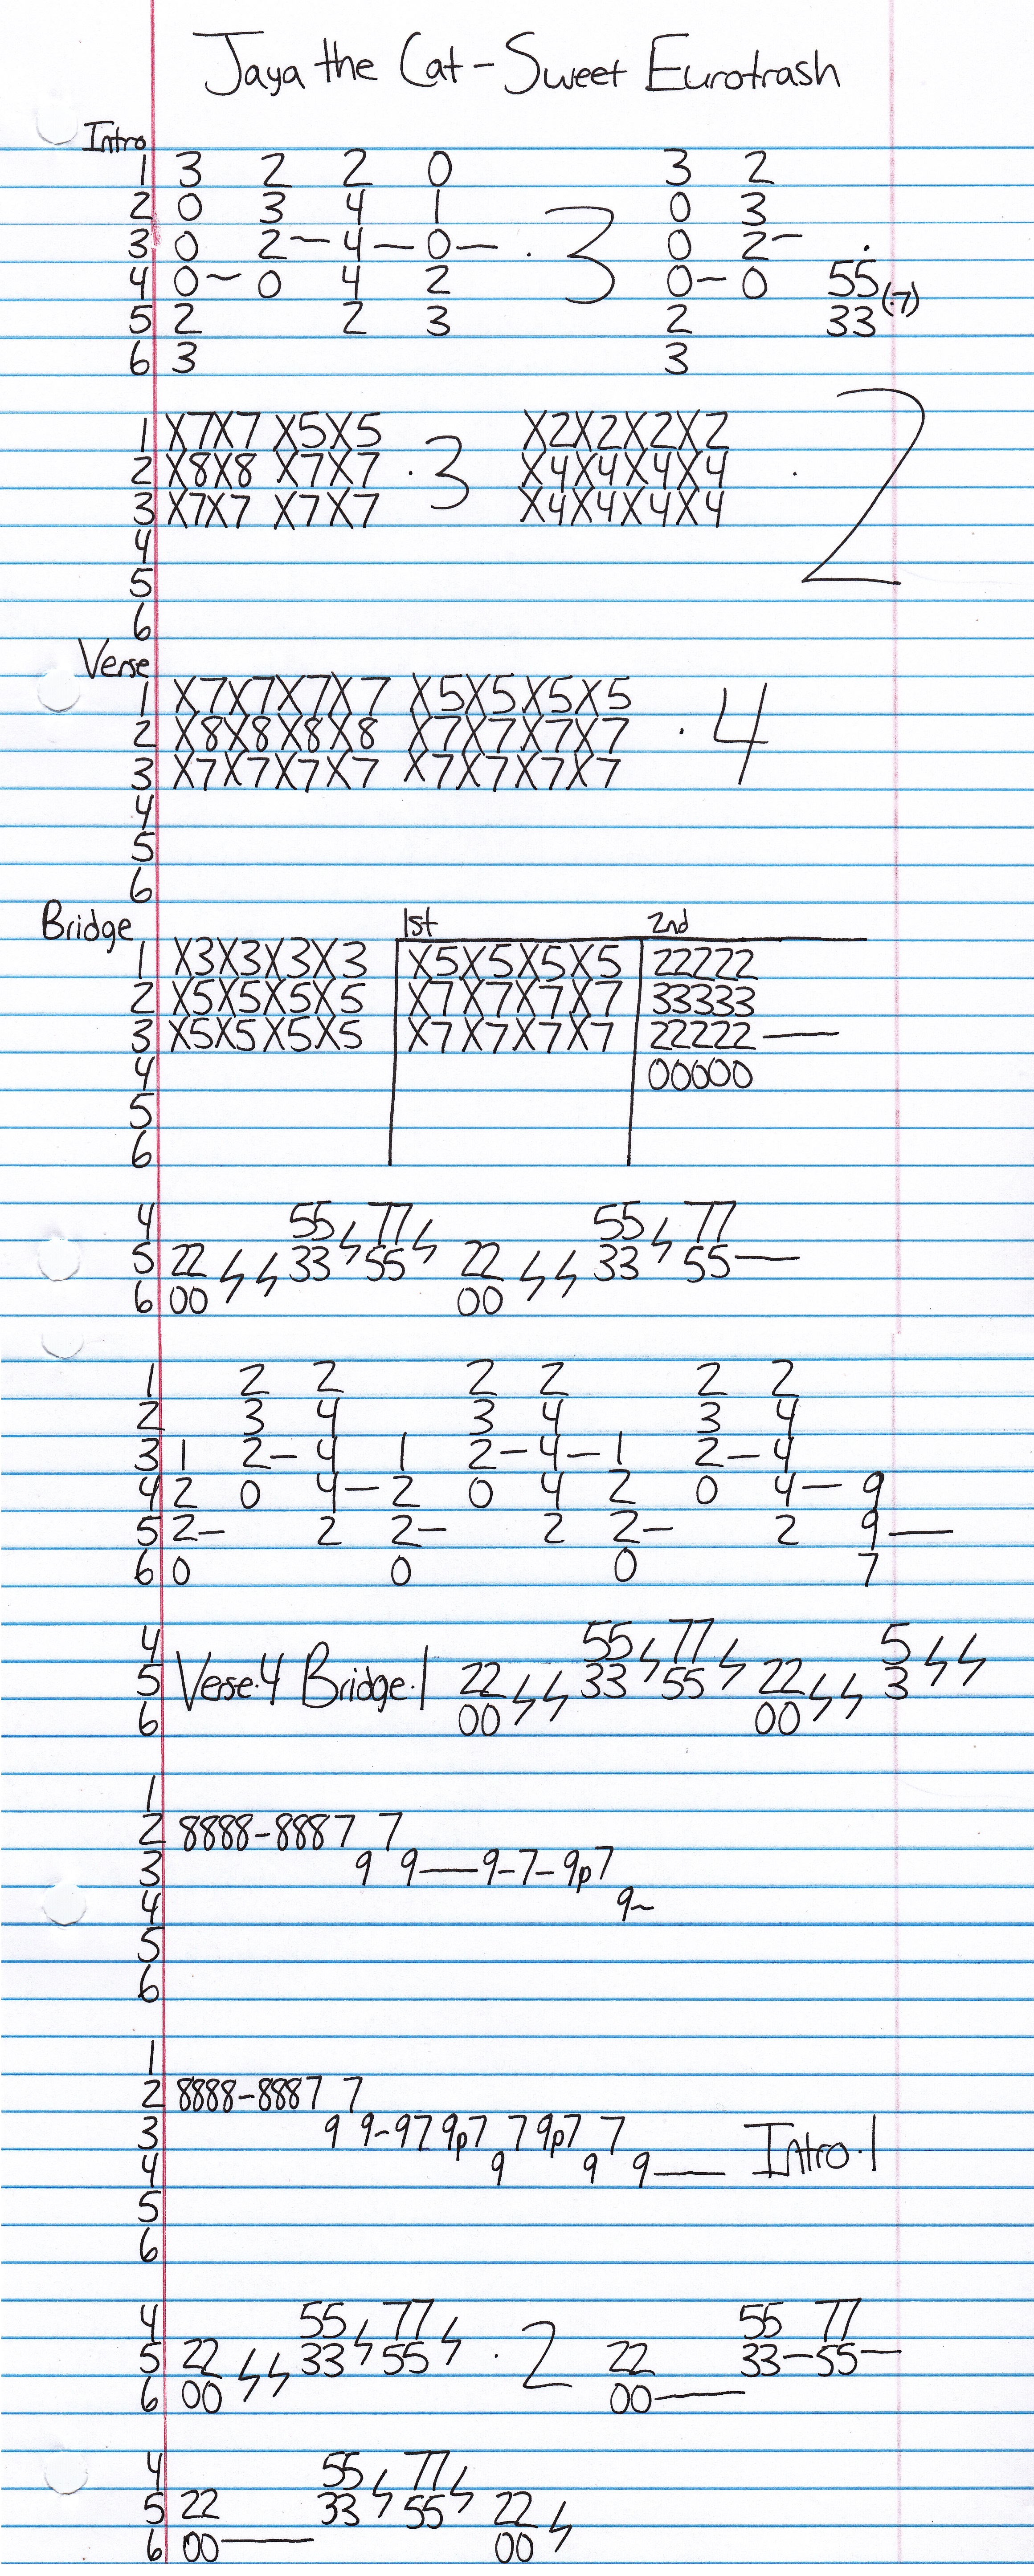 Jaya the Cat - Sweet Eurotrash
Intro
1 3 2 2 0 3 2
2 0 3 4 1 0 3
3 0 2-4-0- .3 0 2- .
4 0~0 4 2 0-0 55(.7)
5 2 2 3 2 33
6 3 3
1 X7X7 X5X5 X2X2X2X2
2 X8X8 X7X7 .3 X4X4X4X4 .2
3 X7X7 X7X7 X4X4X4X4
4
5
6
Verse
1 X7X7X7X7 X5X5X5X5
2 X8X8X8X8 X7X7X7X7 .4
3 X7X7X7X7 X7X7X7X7
4
5
6
Bridge 1st 2nd
1 X3X3X3X3 X5X5X5X5 22222
2 X5X5X5X5 X7X7X7X7 33333
3 X5X5X5X5 X7X7X7X7 22222—
4 00000
5
6
4 55 77 55 77
5 22 33 55 22 33 55—
6 00 00
1 2 2 2 2 2 2
2 3 4 3 4 3 4
3 1 2-4 1 2-4-1 2-4
4 2 0 4-2 0 4 2 0 4-9
5 2- 2 2- 2 2- 2 9—
6 0 0 0 7
4 55 77 5
5 Verse.4 Bridge.1 22 33 55 22 3
6 00 00
1
2 8888-8887 7
3 9 9—9-7-9p7
4 9~
5
6
1
2 8888-8887 7
3 9 9-979p7 79p7 7 Intro.1
4 9 9 9—
5
6
4 55 77 55 77
5 22 33 55 .2 22 33-55-
6 00 00—
4 55 77
5 22 33 55 22
6 00— 00